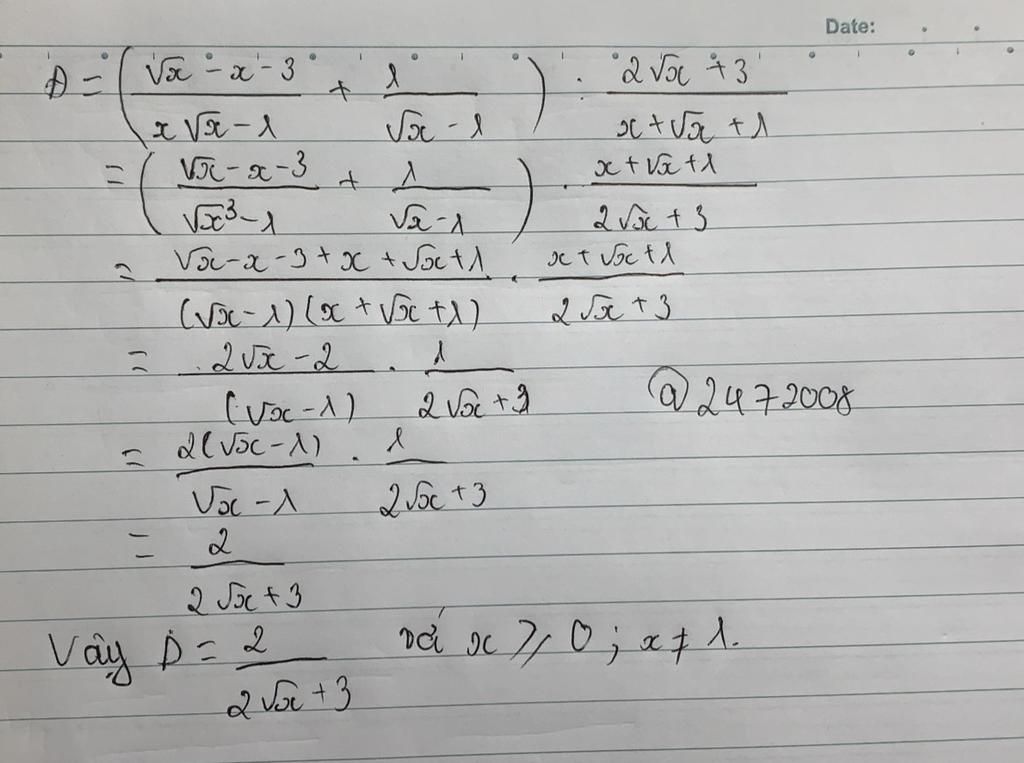 Date:
Đ = ( (√x - x - 3)/(x√x - 1) + 1/(√x - 1) ) : (2√x + 3)/(x + √x + 1)
= ( (√x - x - 3)/(√x³ - 1) + 1/(√x - 1) ) . (x + √x + 1)/(2√x + 3)
= (√x - x - 3 + x + √x + 1)/((√x - 1)(x + √x + 1)) . (x + √x + 1)/(2√x + 3)
= (2√x - 2)/((√x - 1)) . 1/(2√x + 3)
@2472008
= 2(√x - 1)/(√x - 1) . 1/(2√x + 3)
= 2/(2√x + 3)
Vậy Đ = 2/(2√x + 3) với x ≥ 0 ; x ≠ 1.